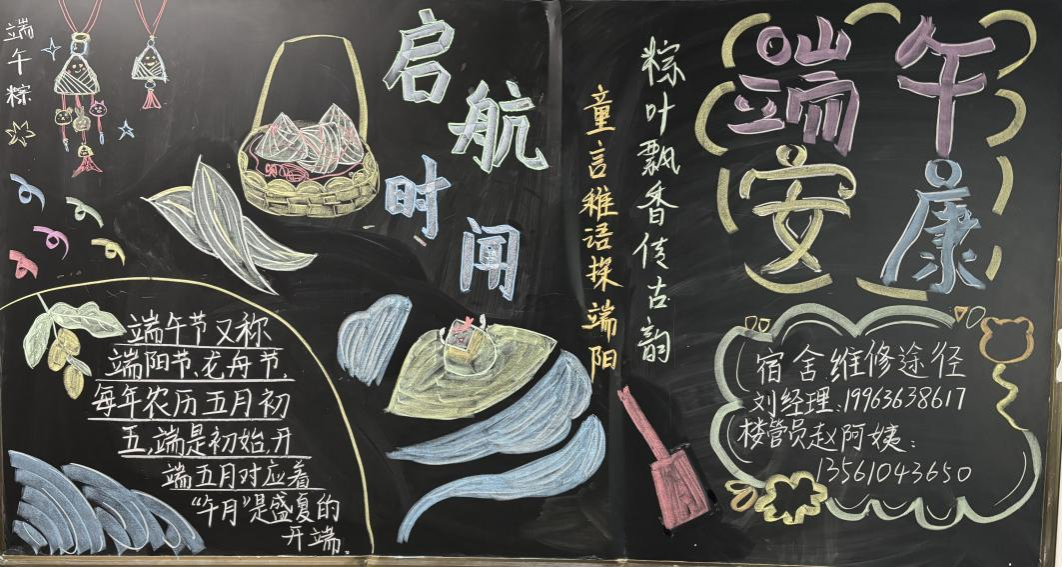 端午粽
启航
时间
粽叶飘香传古韵
童言稚语探端阳
端午
安康
端午节又称
端阳节、龙舟节,
每年农历五月初
五,端是初始,开
端五月对应着
“午月”是盛夏的
开端。
宿舍维修途径
刘经理:19963638617
楼管员赵阿姨:
13561043650